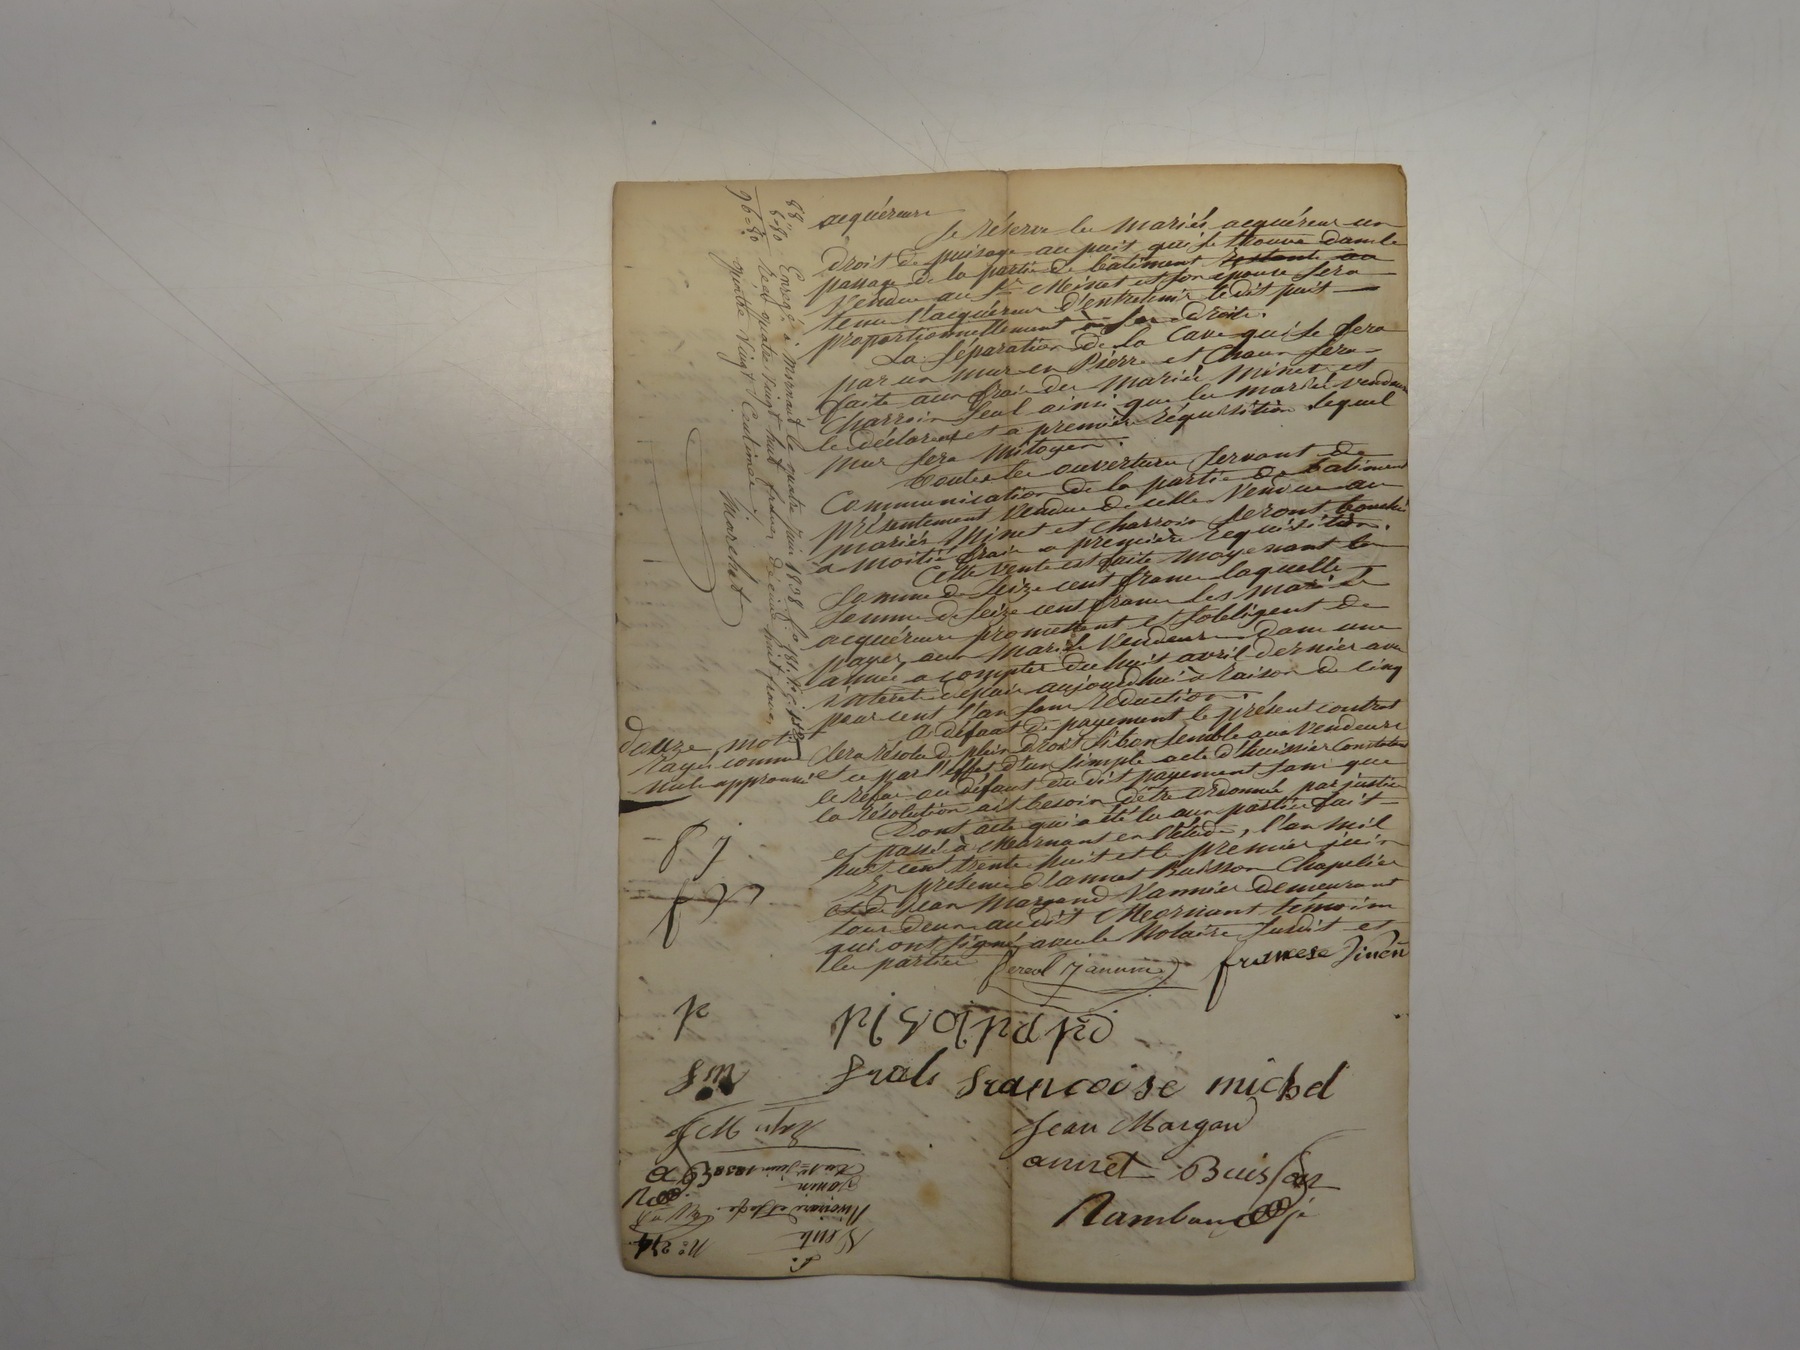 acquéreurs
Se réserve les mariés acquéreur un
droit de puisage au puit qui se trouve dans le
passage de la partie de batiment restante au
vendue au Sr Minet et son épouse sera
tenu l'acquéreur d'entretenir le dit puit
proportionnellement a ses droits.
La séparation de la Cave qui se fera
par un mur en Pierre et Chaux sera
faite aux frais des mariés Minet et
Charroin seul ainsi que les mariés vendeurs
le déclarent a première réquisition lequel
mur sera mitoyen.
Toutes les ouvertures servant de
Communication de la partie de batiment
présentement vendue de celle vendue au
mariés Minet et Charroin seront bouchés
a moitié frais a première requisition.
Cette vente est faite moyenant la
somme de seize cent francs laquelle
somme de seize cent francs les mariés
acquéreurs promettent et s'obligent de
payer aux mariés Vendeurs dans une
année a compter du huit avril dernier avec
intérêt depuis aujourd'hui à raison de cinq
pour cent l'an sans réduction.
A défaut de payement le présent contrat
sera résolu de plein droit si bon semble aux vendeurs
et ce par l'effet d'un simple acte d'huissier Constatant
le refus ou défaut du dit payement sans que
la résolution ait besoin d'être ordonnée par justice
Dont acte qui a été lu aux parties fait
et passé à Mornant en l'étude, l'an mil
huit cent trente huit et le premier juin
En présence d'annet Buisson Chapelier
et de Jean Margand Vannier demeurant
tous deux au dit Mornant témoins
qui ont signé avec le Notaire susdit et
les parties
françoise Pinon
frals françoise michel
Jean Margand
annet Buisson
Rambau
douze mots
rayés comme
nuls approuvé
88"
8-80
96=80
Enregé à Mornant le quatre juin 1838 fo 181
Reçu quatre vingt huit francs décime huit francs
quatre vingt Centimes
Marchot
No 274
Vente